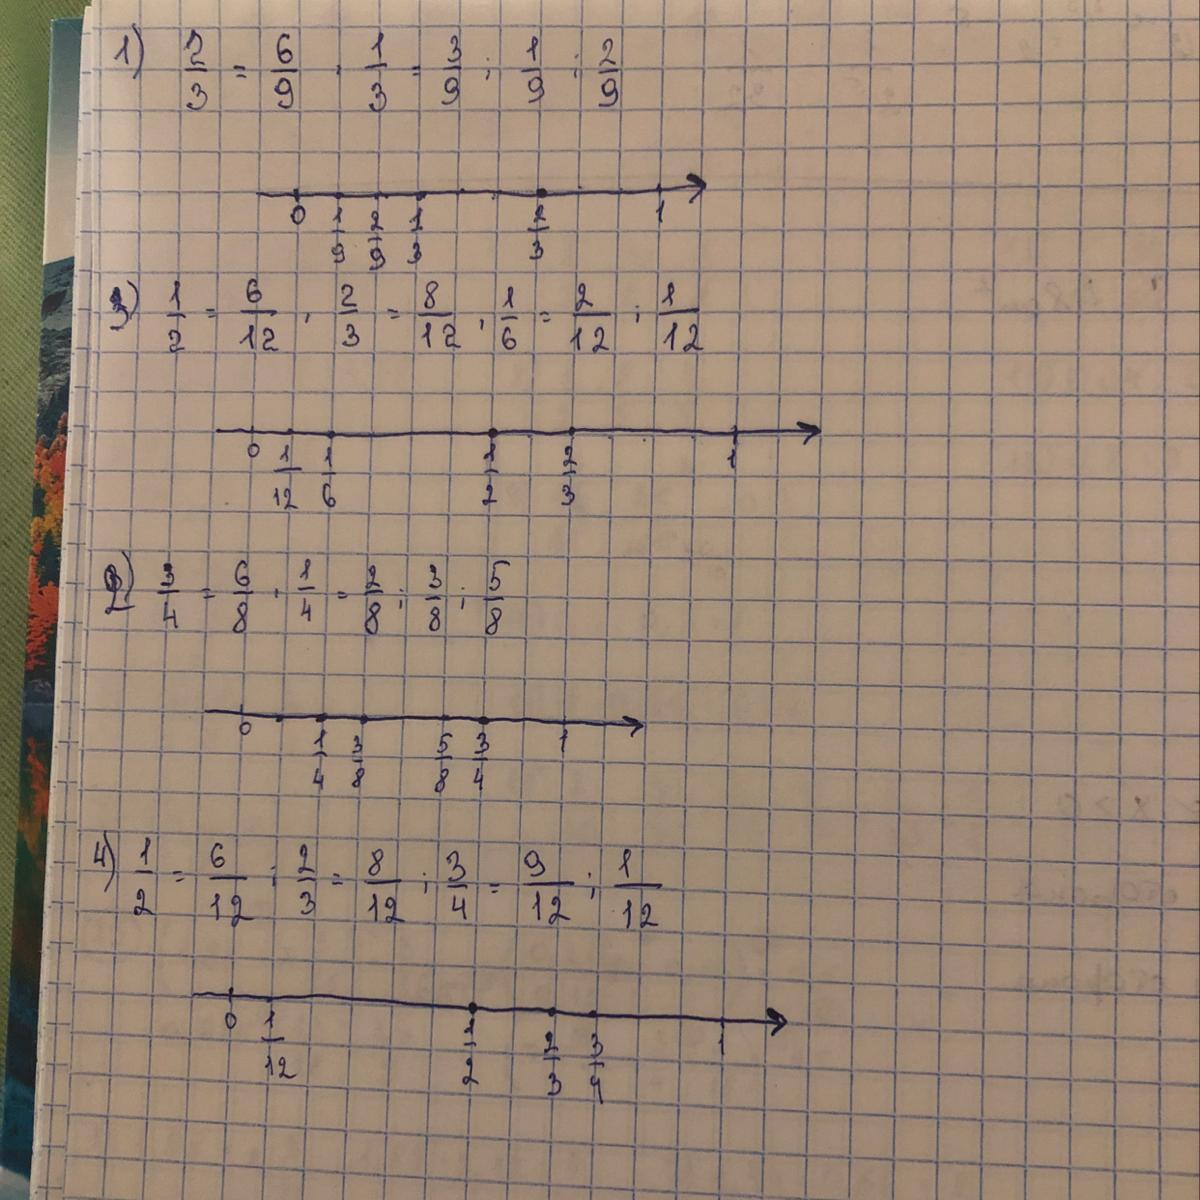 1) 2/3 = 6/9 ; 1/3 = 3/9 ; 1/9 ; 2/9
0 1/9 2/9 1/3 2/3 1
3) 1/2 = 6/12 ; 2/3 = 8/12 ; 1/6 = 2/12 ; 1/12
0 1/12 1/6 1/2 2/3 1
2) 3/4 = 6/8 ; 1/4 = 2/8 ; 3/8 ; 5/8
0 1/4 3/8 5/8 3/4 1
4) 1/2 = 6/12 ; 2/3 = 8/12 ; 3/4 = 9/12 ; 1/12
0 1/12 1/2 2/3 3/4 1